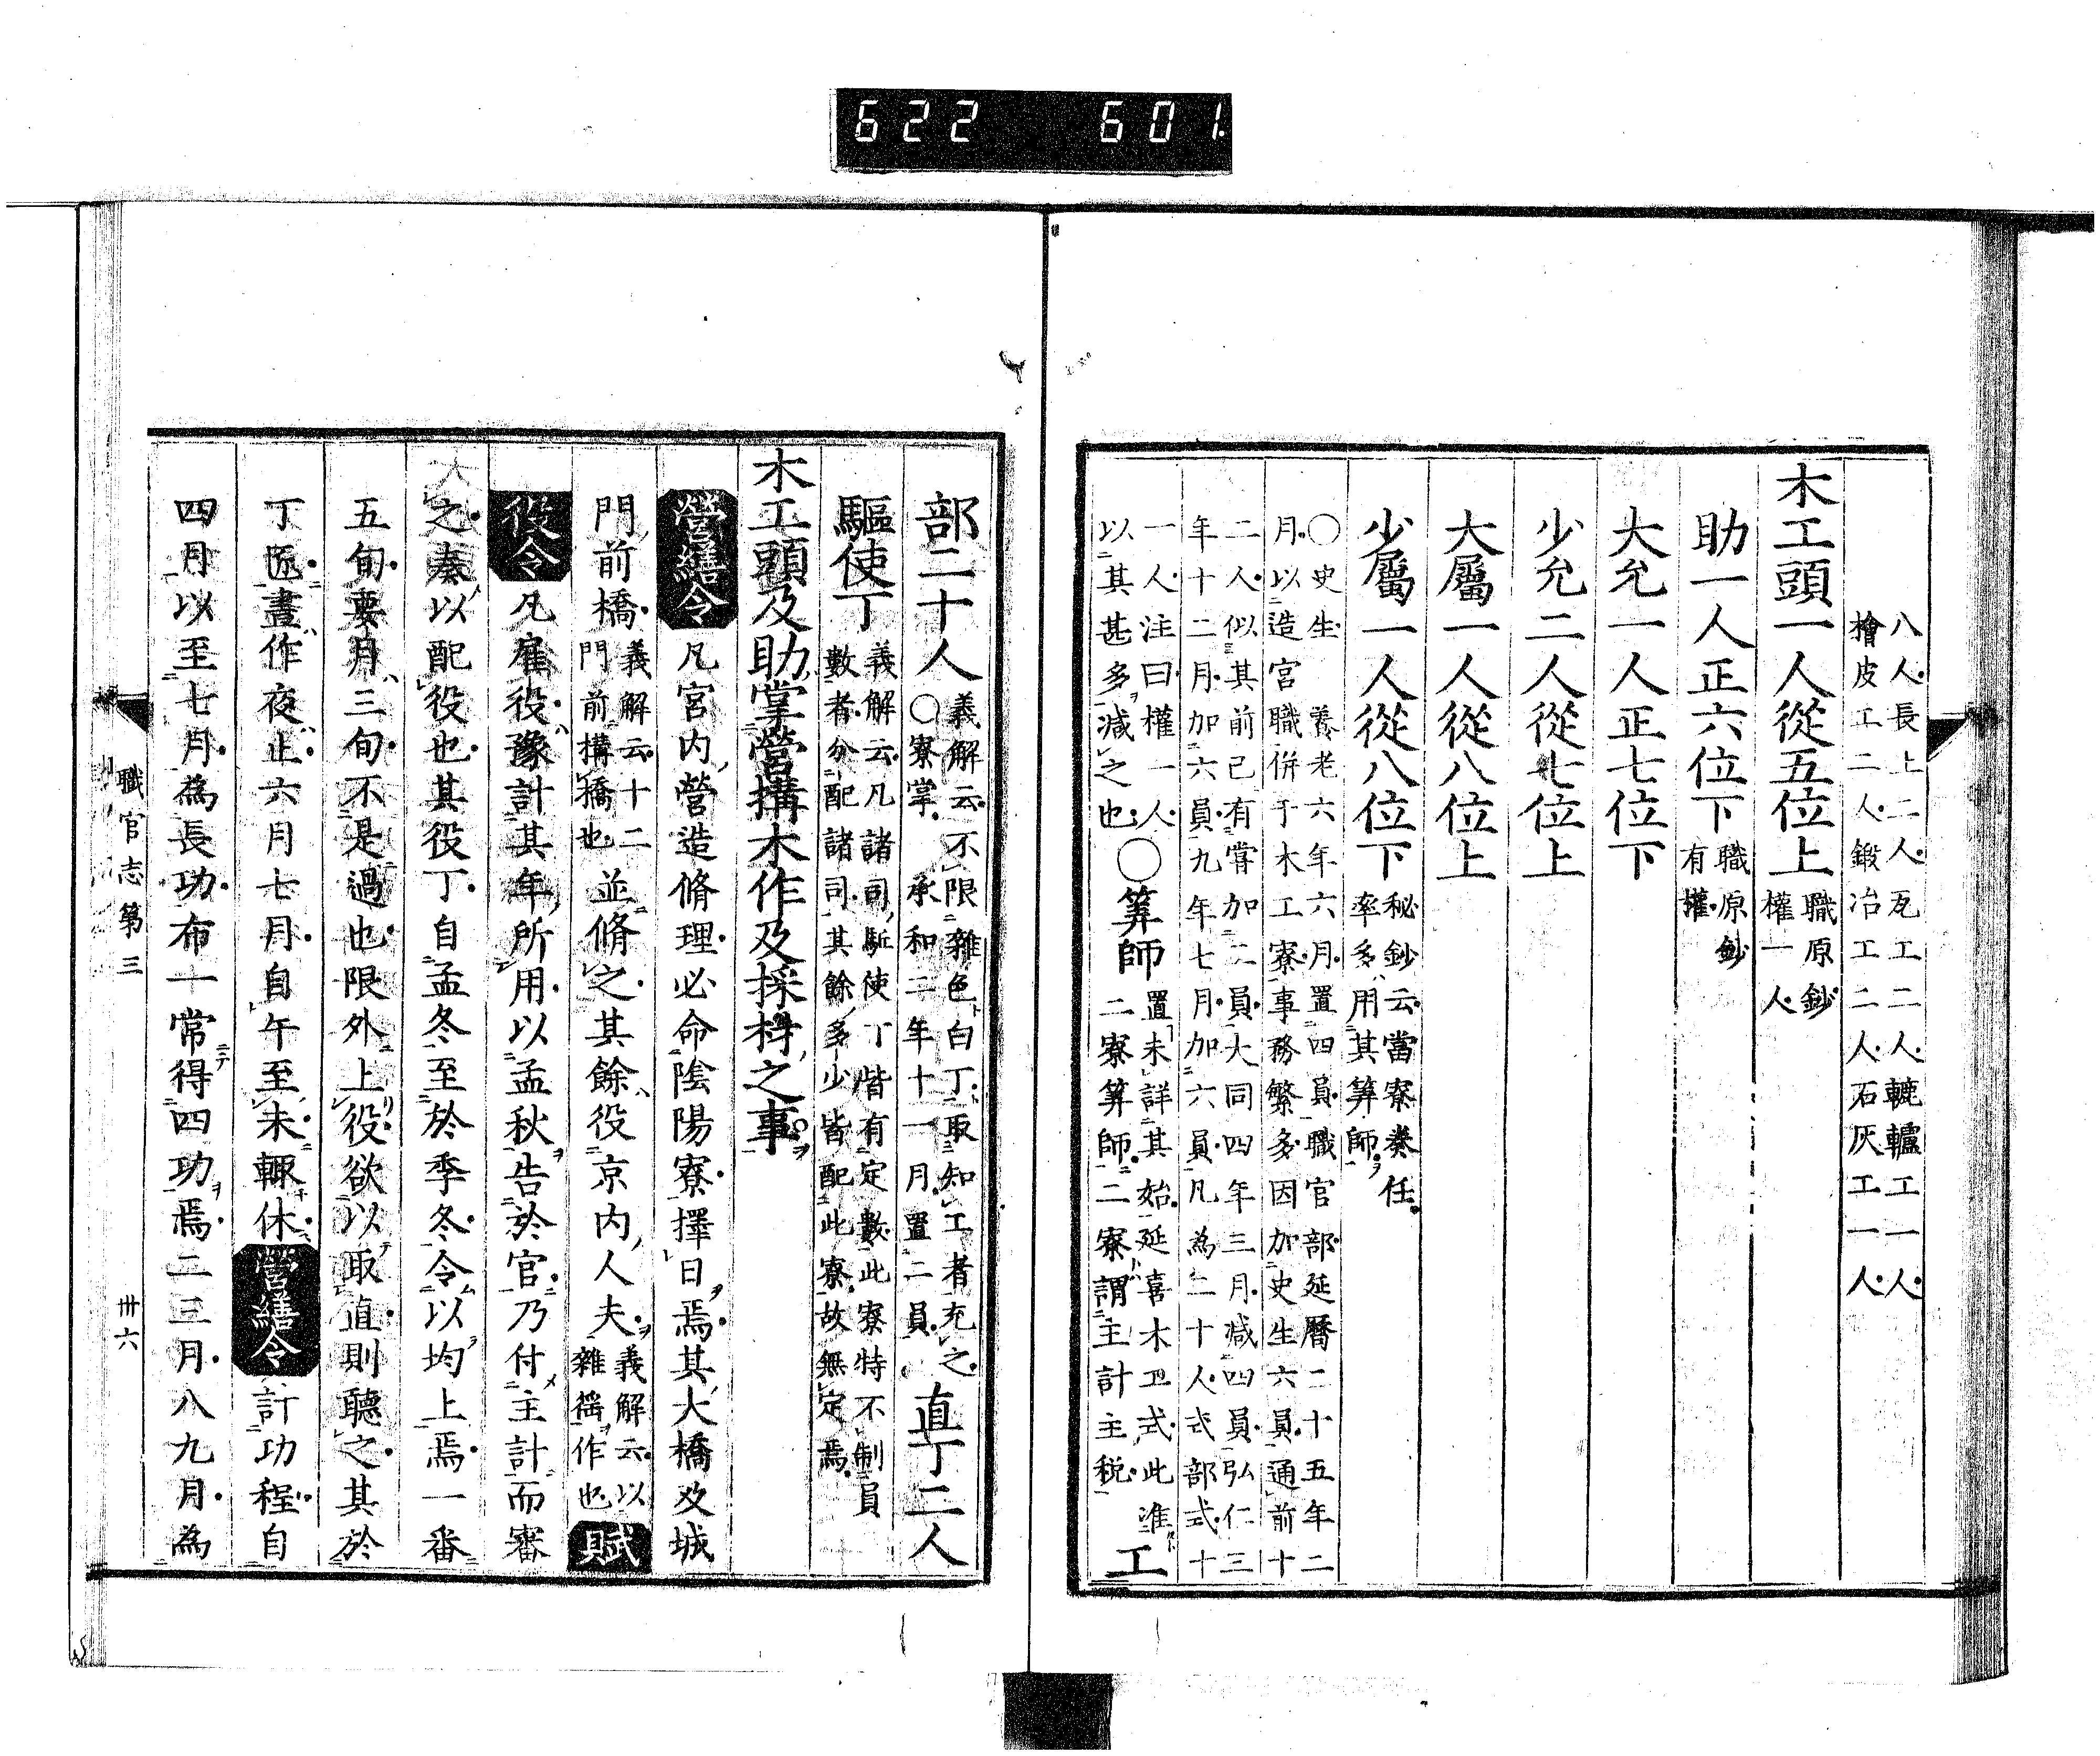 622 601.
八人長上二人瓦工二人轆轤工一人
檜皮工二人鍛冶工二人石灰工一人
木工頭一人從五位上職原鈔權一人
助一人正六位下職原鈔有權
大允一人正七位下
少允二人從七位上
大屬一人從八位上
少屬一人從八位下秘鈔云當寮奏任率多用其筭師
○史生養老六年六月置四員職官部延曆二十五年二
月以造宮職併于木工寮事務繁多因加史生六員通前十
二人似其前已有嘗加二員大同四年三月減四員弘仁三
年十二月加六員九年七月加六員凡為二十人式部式十
一人注曰權一人
以其甚多減之也
○筭師
置未詳其始延喜木工式此准
二寮筭師二寮謂主計主税
工
部二十人
義解云不限雜色白丁取知工者充之
○寮掌承和二年十一月置二員
直丁二人
驅使丁
義解云凡諸司駈使丁皆有定數此寮特不制員
數者分配諸司其餘多少皆配此寮故無定焉
木工頭及助掌營搆木作及採材之事
營繕令凡宮内營造脩理必命陰陽寮擇日焉其大橋及城
門前橋義解云十二門前搆橋也並脩之其餘役京内人夫義解云以雜徭作也賦
役令凡雇役豫計其年所用以孟秋告於官乃付主計而審
之奏以配役也其役丁自孟冬至於季冬令以均上焉一番
五旬要月三旬不是過也限外上役欲以取直則聽之其於
丁匠晝作夜止六月七月自午至未輙休營繕令計功程自
四月以至七月為長功布一常得四功焉二三月八九月為
職官志第三
卅六